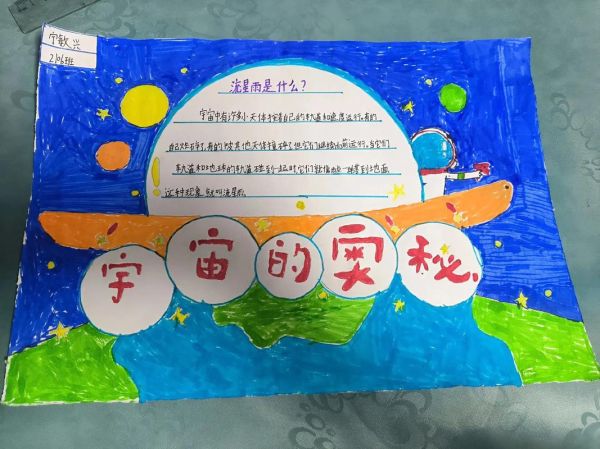 宁敏兴
2106班
流星雨是什么？
宇宙中有许多小天体按着自己的轨道和速度运行。有的
自己炸碎了，有的被其他天体撞碎了，但它们继续向前运行。当它们
轨道和地球的轨道碰到一起时，它们就像雨一样落到地面，
这种现象就叫流星雨。
宇宙的奥秘